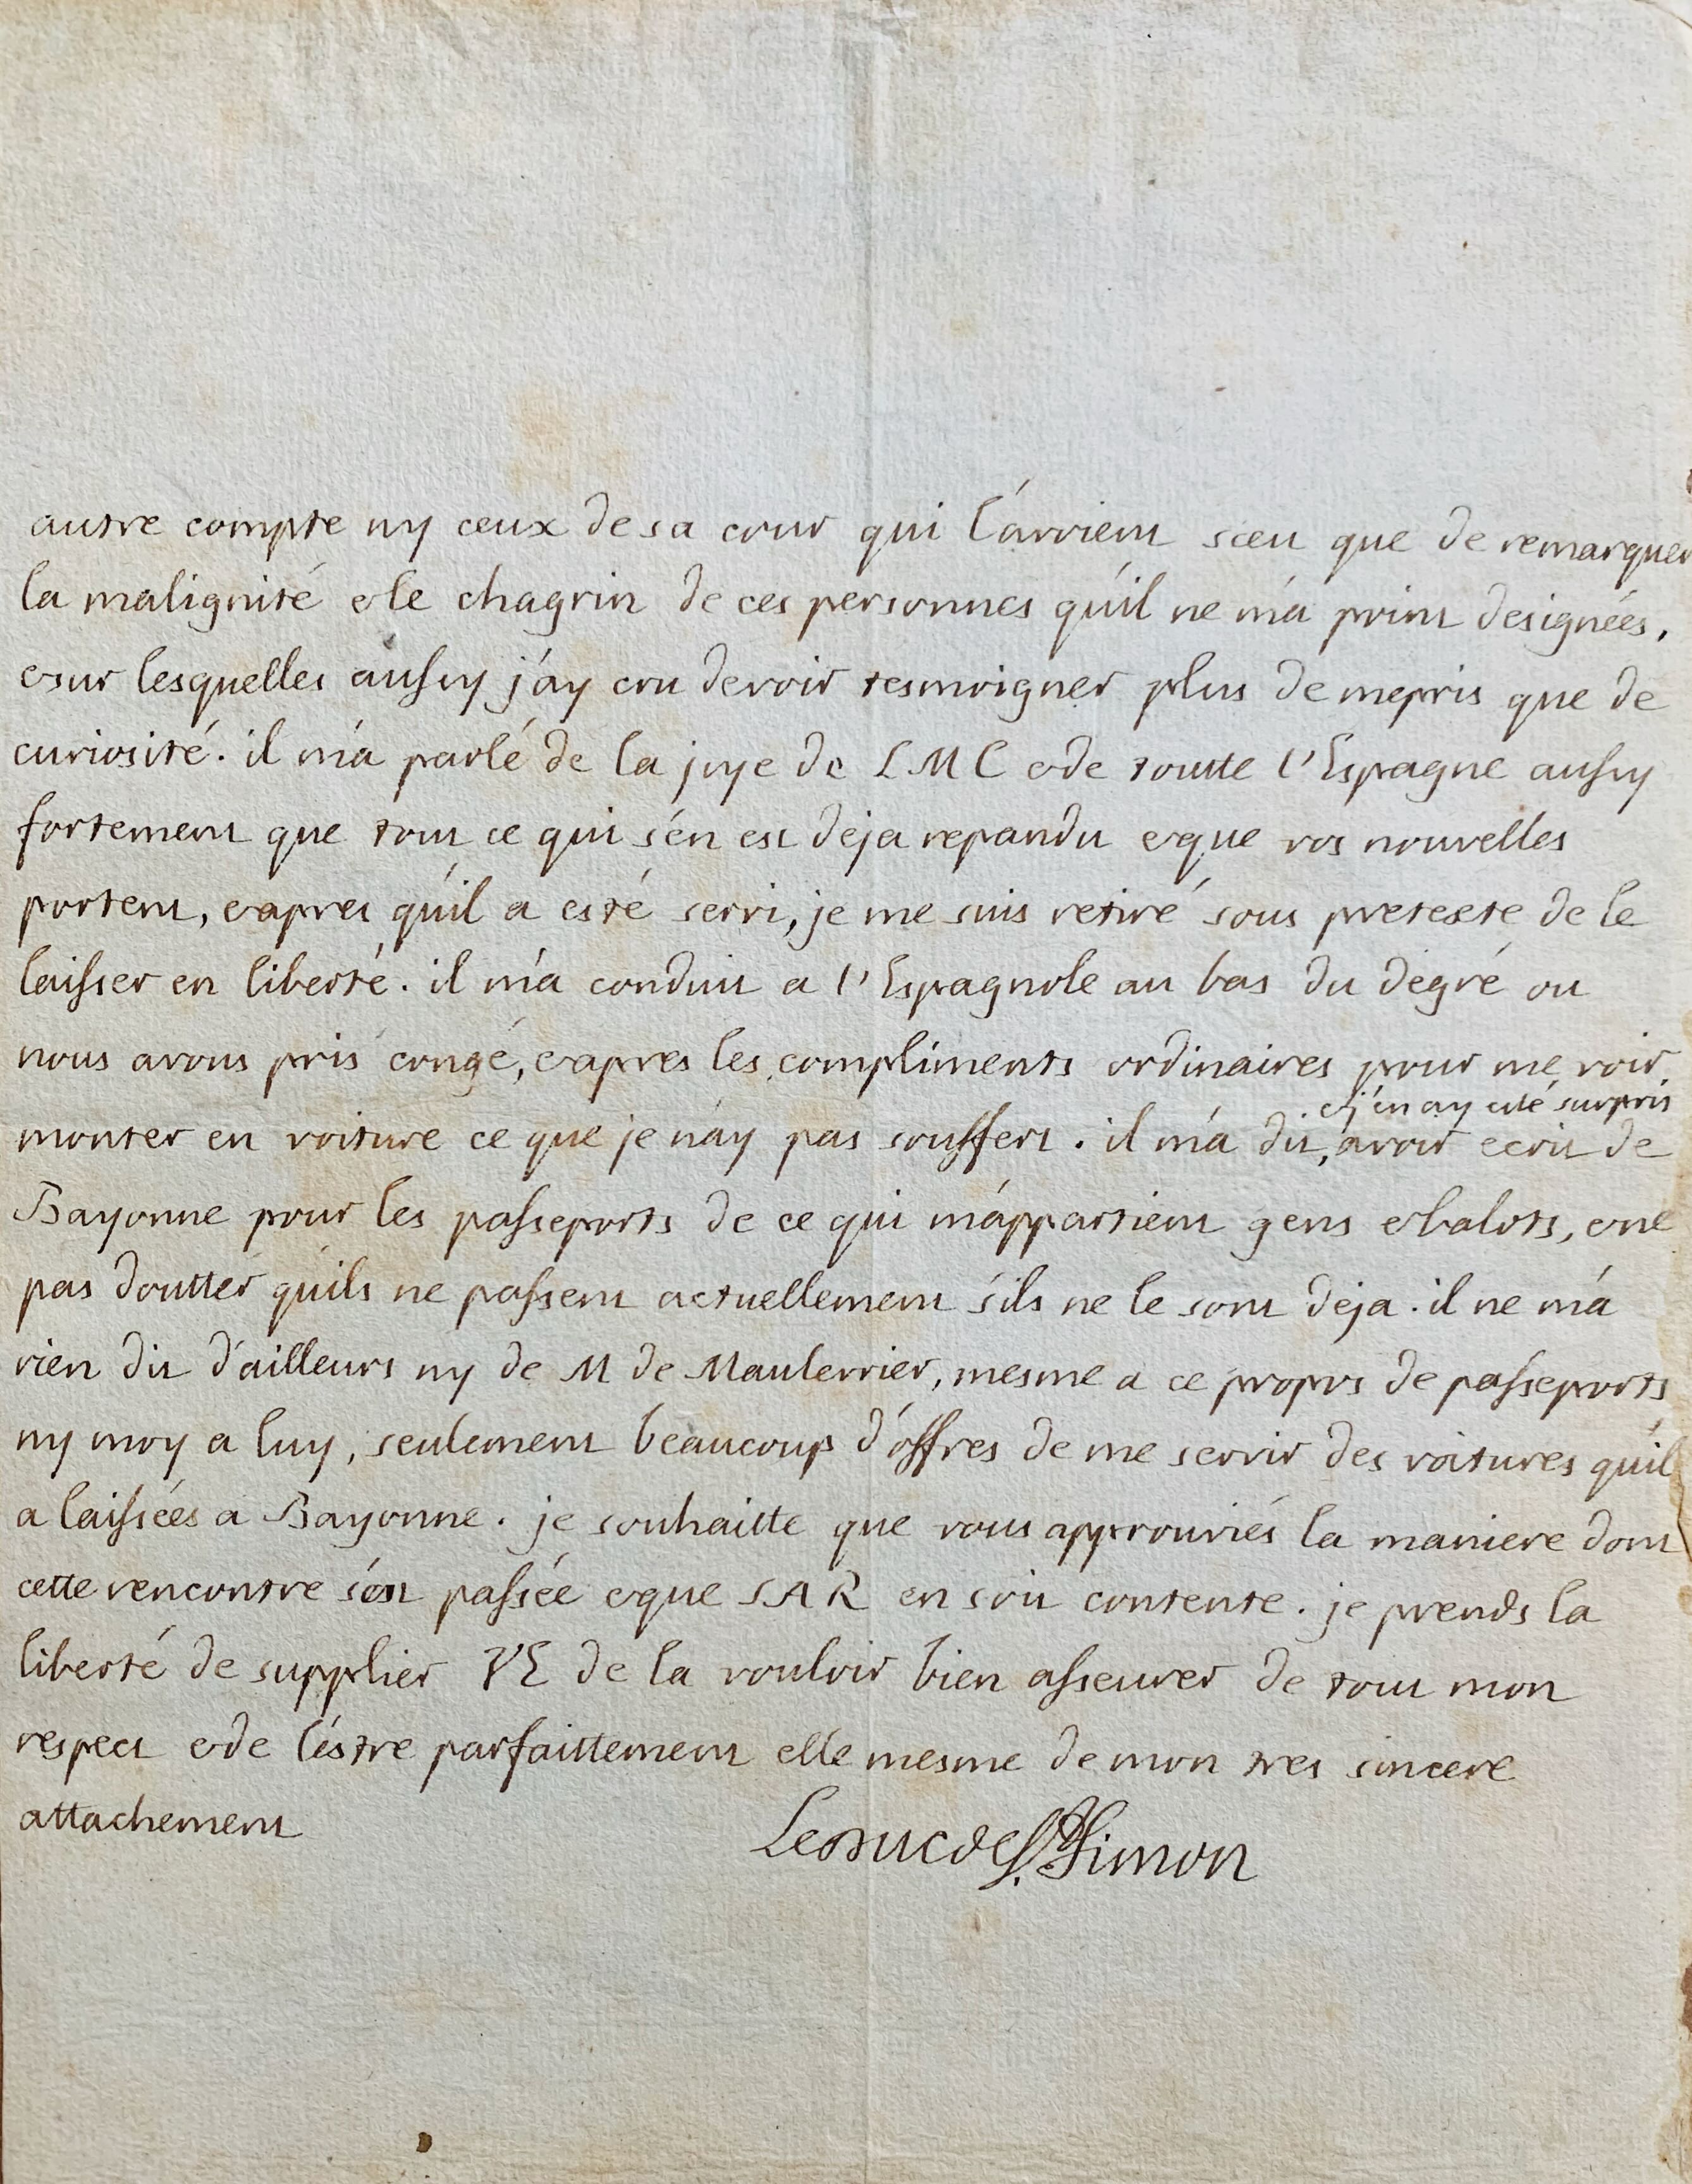 autre compte ny ceux de sa cour qui l'avoient sceu que de remarquer
la malignité & le chagrin de ces personnes qu'il ne m'a point designées,
& sur lesquelles aussy j'ay cru devoir tesmoigner plus de mepris que de
curiosité. il m'a parlé de la joye de LMC & de toutte l'Espagne aussy
fortement que tout ce qui s'en est deja repandu & que vos nouvelles
portent, & apres qu'il a esté servi, je me suis retiré sous pretexte de le
laisser en liberté. il m'a conduit a l'Espagnole au bas du degré ou
nous avons pris congé, & apres les compliments ordinaires pour me voir
monter en voiture ce que je n'ay pas souffert. il m'a dit, & j'en ay esté surpris avoir ecrit de
Bayonne pour les passeports de ce qui m'appartient gens & balots, & ne
pas doutter qu'ils ne passent actuellement s'ils ne le sont deja. il ne m'a
rien dit d'ailleurs ny de M de Maulevrier, mesme a ce propos de passeports
ny moy a luy, seulement beaucoup d'offres de me servir des voitures qu'il
a laissées a Bayonne. je souhaitte que vous approuviés la maniere dont
cette rencontre s'est passée & que SAR en soit contente. je prends la
liberté de supplier VE de la vouloir bien asseurer de tout mon
respect & de l'estre parfaittement elle mesme de mon tres sincere
attachement
Le duc de St Simon